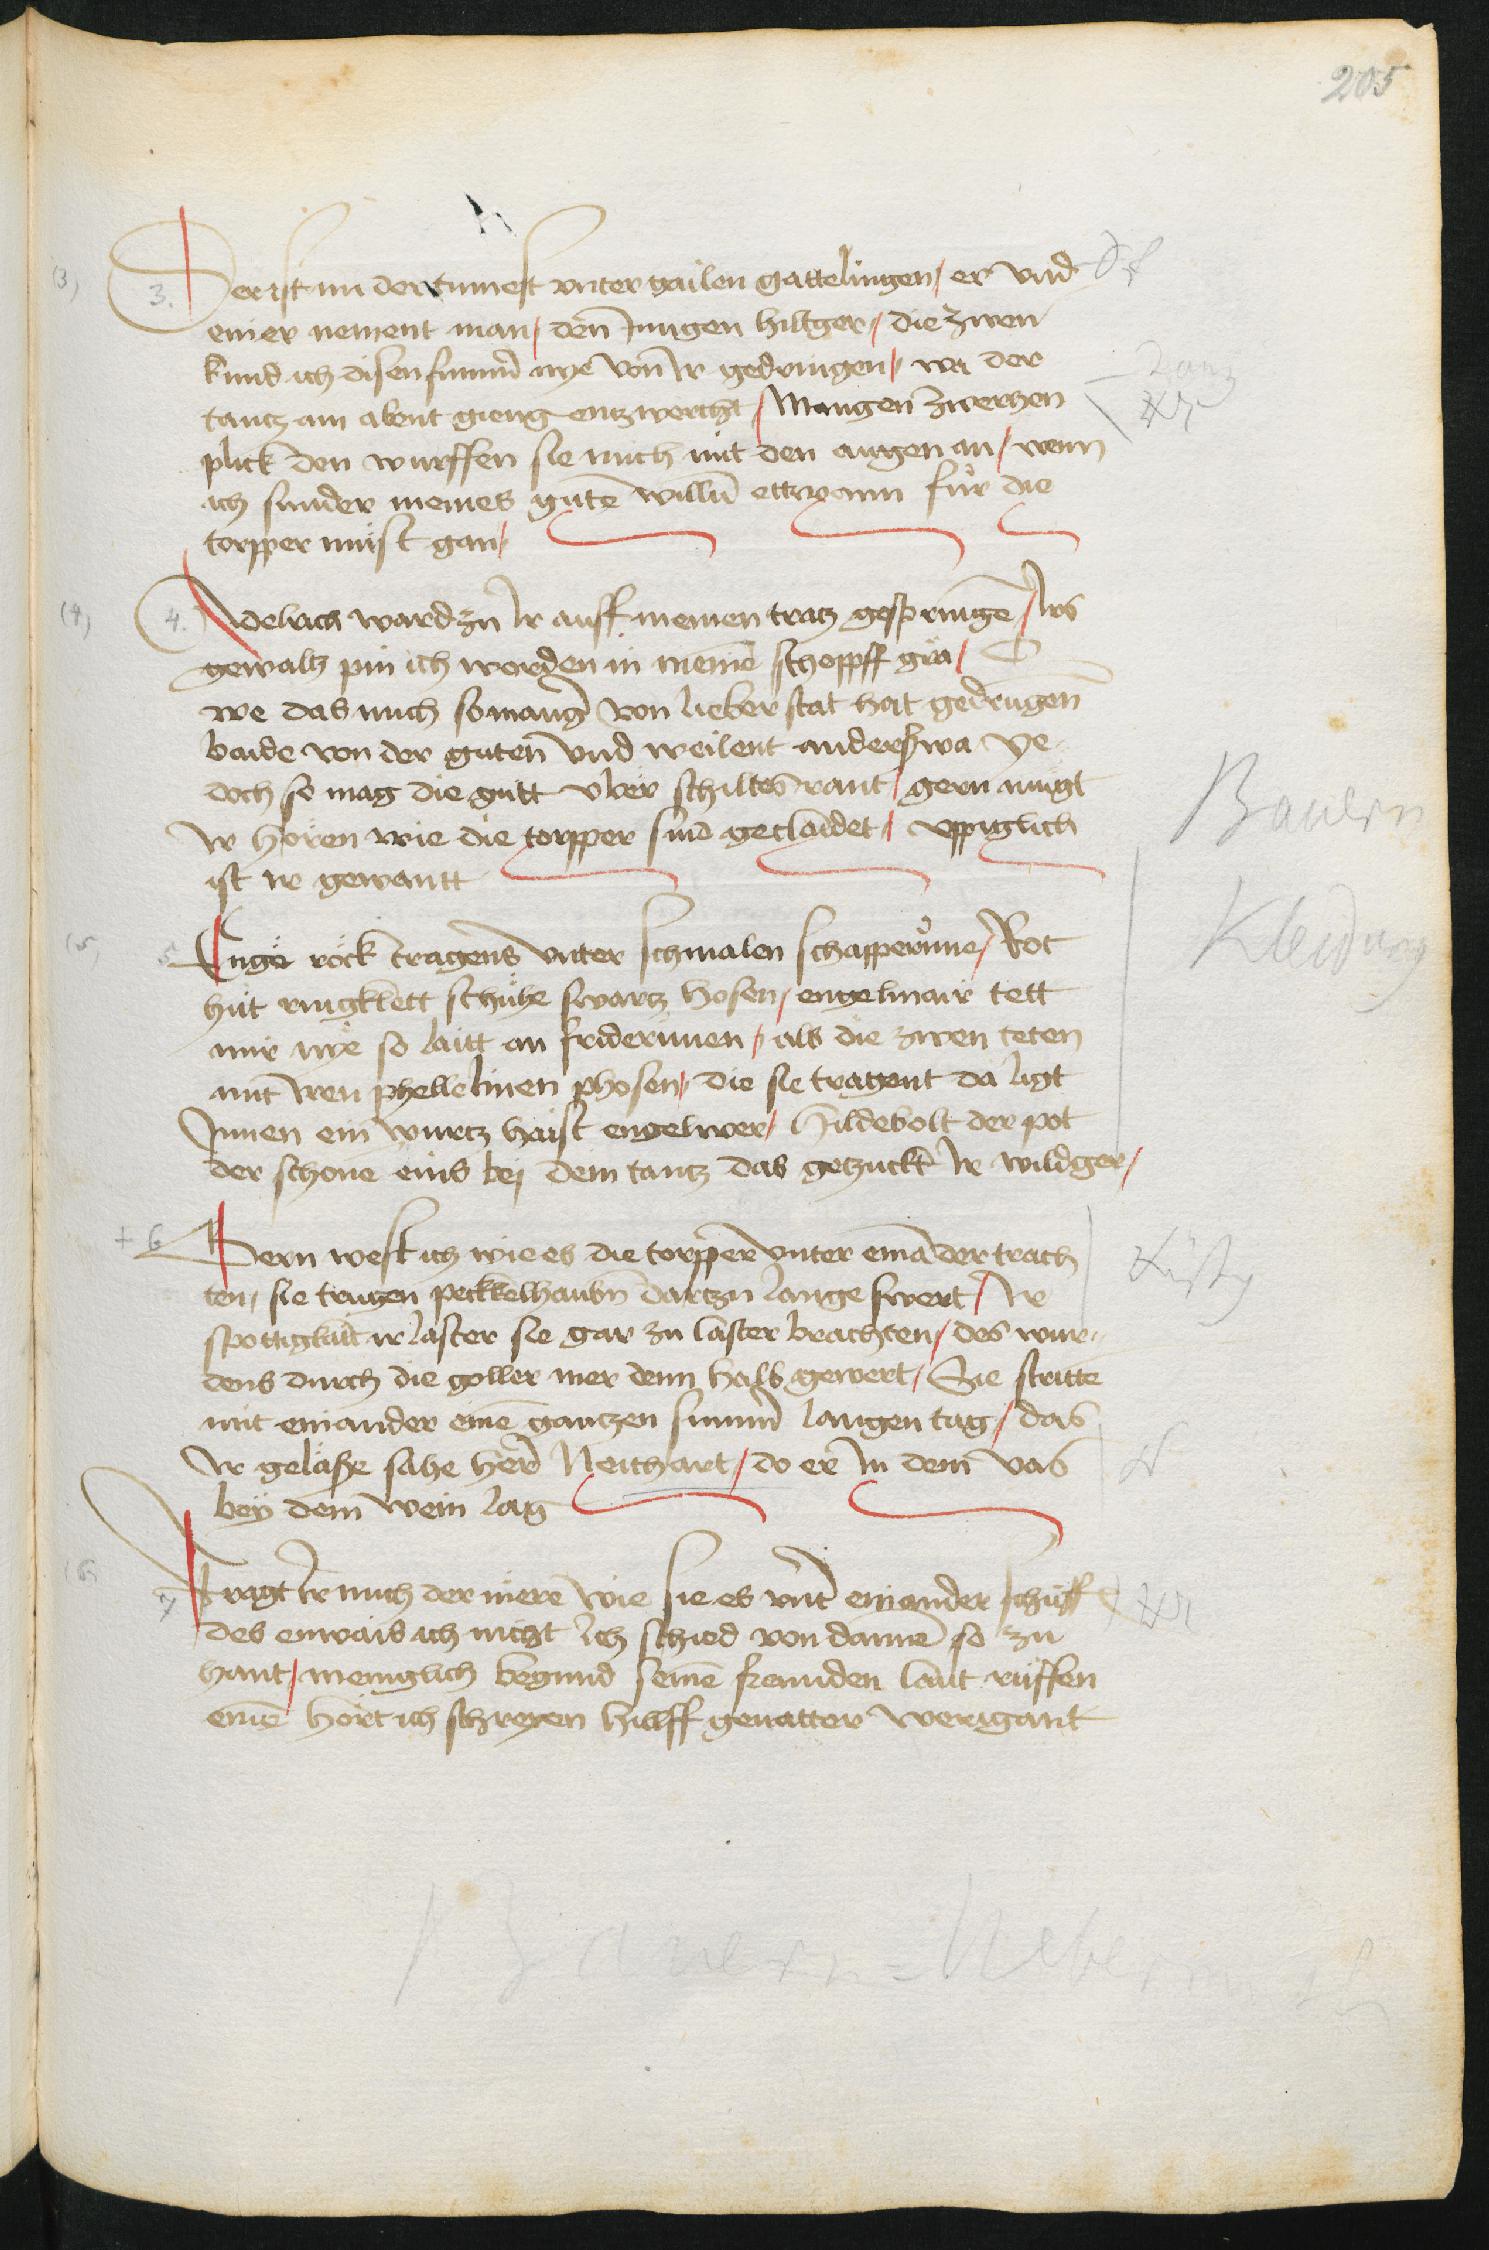 205
(3) 3. Der ist nu der tumest vnter gailen gattelingen / er vnd
einer nement man / den Jungen hiltger / die zwen
kund ich disen sumer nye von Ir gedringen / wa der
tantz am abent gieng entzwercht / Mangen zwerhen
plick den wurffen sie mich mit den augen an / wenn
ich sunder meines guten willn ettwann für die
torpper müst gan /
(4) 4. Adelrich ward zu Ir auff meinen tratz gesprunge / Irs
gewaltz pin ich worden in meine schopff gra / O
we das mich so mangr von lieber stat hat gedrungen
baide von der guten vnd weilent anderswa Ye
doch so mag die gutt vber schiltes rant / gern mugt
Ir hören wie die torpper sind geclaidet / vppiglich
ist Ir gewantt
(5) 5. Enge röck tragens vnter schmalen schapperune / Rot
hüt ringklett schuhe swartz hosen / engelmair tett
mir nye so laitt an friderunen / als die zwen teten
mit Iren phellelinen phosen / die sie tragent da ligt
Innen ein wurtz haist engelwer / Hildebolt der pot
der schone eins bej dem tantz das getzuckt Ir wildger /
+ 6 Gern west ich wie es die torpper vnter einander trach
ten / sie trugen peckkelhaubn dartzu lange swert / Ir
spottigkait ir laster sie gar zu laster brachten / des wur
dens durch die goller mer denn halb gewert / Sie stritte
mit einander eine gantzen sumer langen tag / das
Ir geläße sahe her Neithart / do er In dem vas
bey dem wein lag
(6) 7 Fragt Ir mich der mere wie sie es vnt einander schüff
des enwais ich nicht Ich schied von danne so zu
hant / meniglich begund seine freunden laut ruffen
eine hört ich schreyen hillff geuatter werigant
Tanz
Bauern
Kleidung
Bauern=Uebermuth